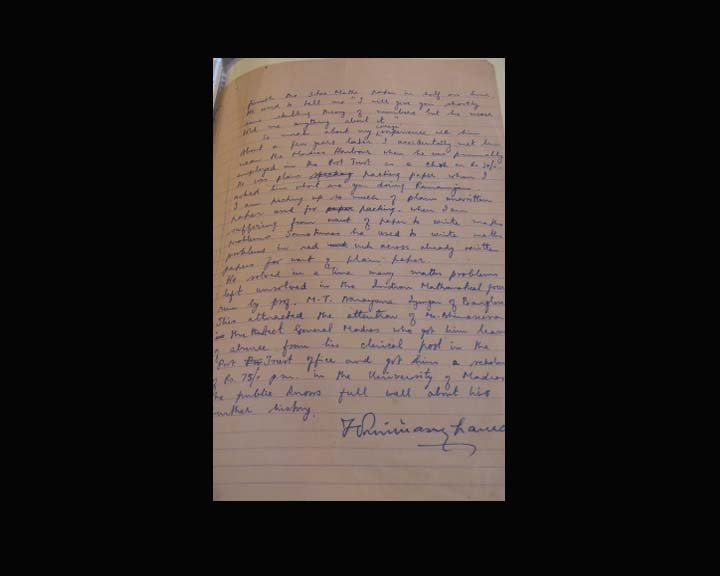 finish the 3 hrs Maths paper in half an hour.
He used to tell me "I will give you shortly
some thrilling theory of numbers but he never
told me anything about it"
So much about my college experience with him
About a few years later I accidentally met him
near the Madras Harbour when he was presumably
employed in the Port Trust as a clerk on Rs 30/-
He was plain packing paper when I
asked him what are you doing Ramanujan.
I am picking up so much of plain unwritten
paper used for paper packing. when I am
suffering from want of paper to write maths
problems. Sometimes he used to write maths
problems in red ink across already written
papers for want of plain paper.
He solved in a time many maths problems
left unsolved in the Indian Mathematical
run by prof. M.T. Narayana Iyengar of Bangalore
This attracted the attention of
the General Madras who got him leave
of absence from his clerical post in the
Port Trust office and got him a
of Rs. 75/- p.m. in the University of Madras
The public knows full well about his
further history.